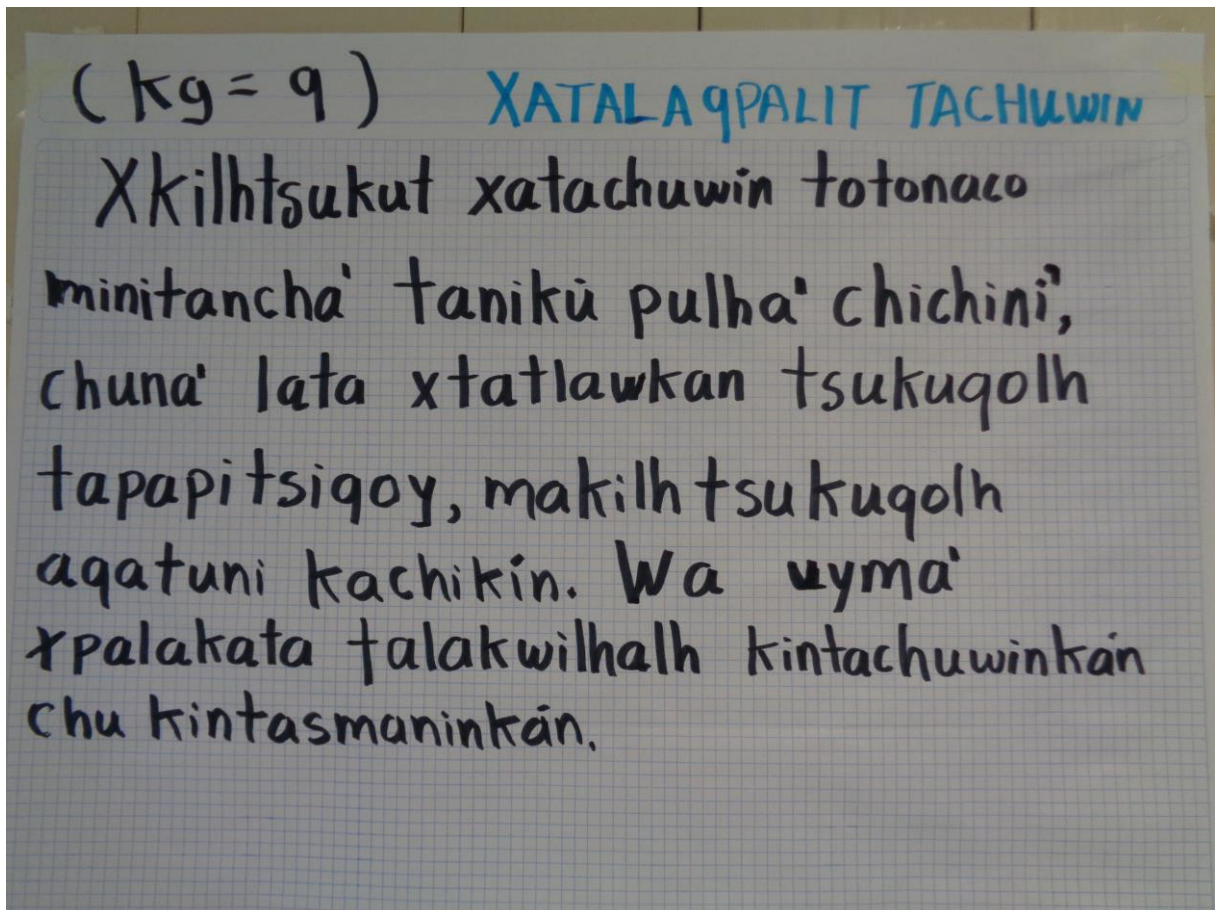 (kg = q) XATALAqPALIT TACHUWIN
Xkilhtsukut xatachuwin totonaco
minitancha' taniku pulha' chichini',
chuna' lata xtatlawkan tsukuqolh
tapapitsiqoy, makilhtsukuqolh
aqatuni kachikín. Wa uyma'
xpalakata talakwilhalh kintachuwinkán
chu kintasmaninkán.